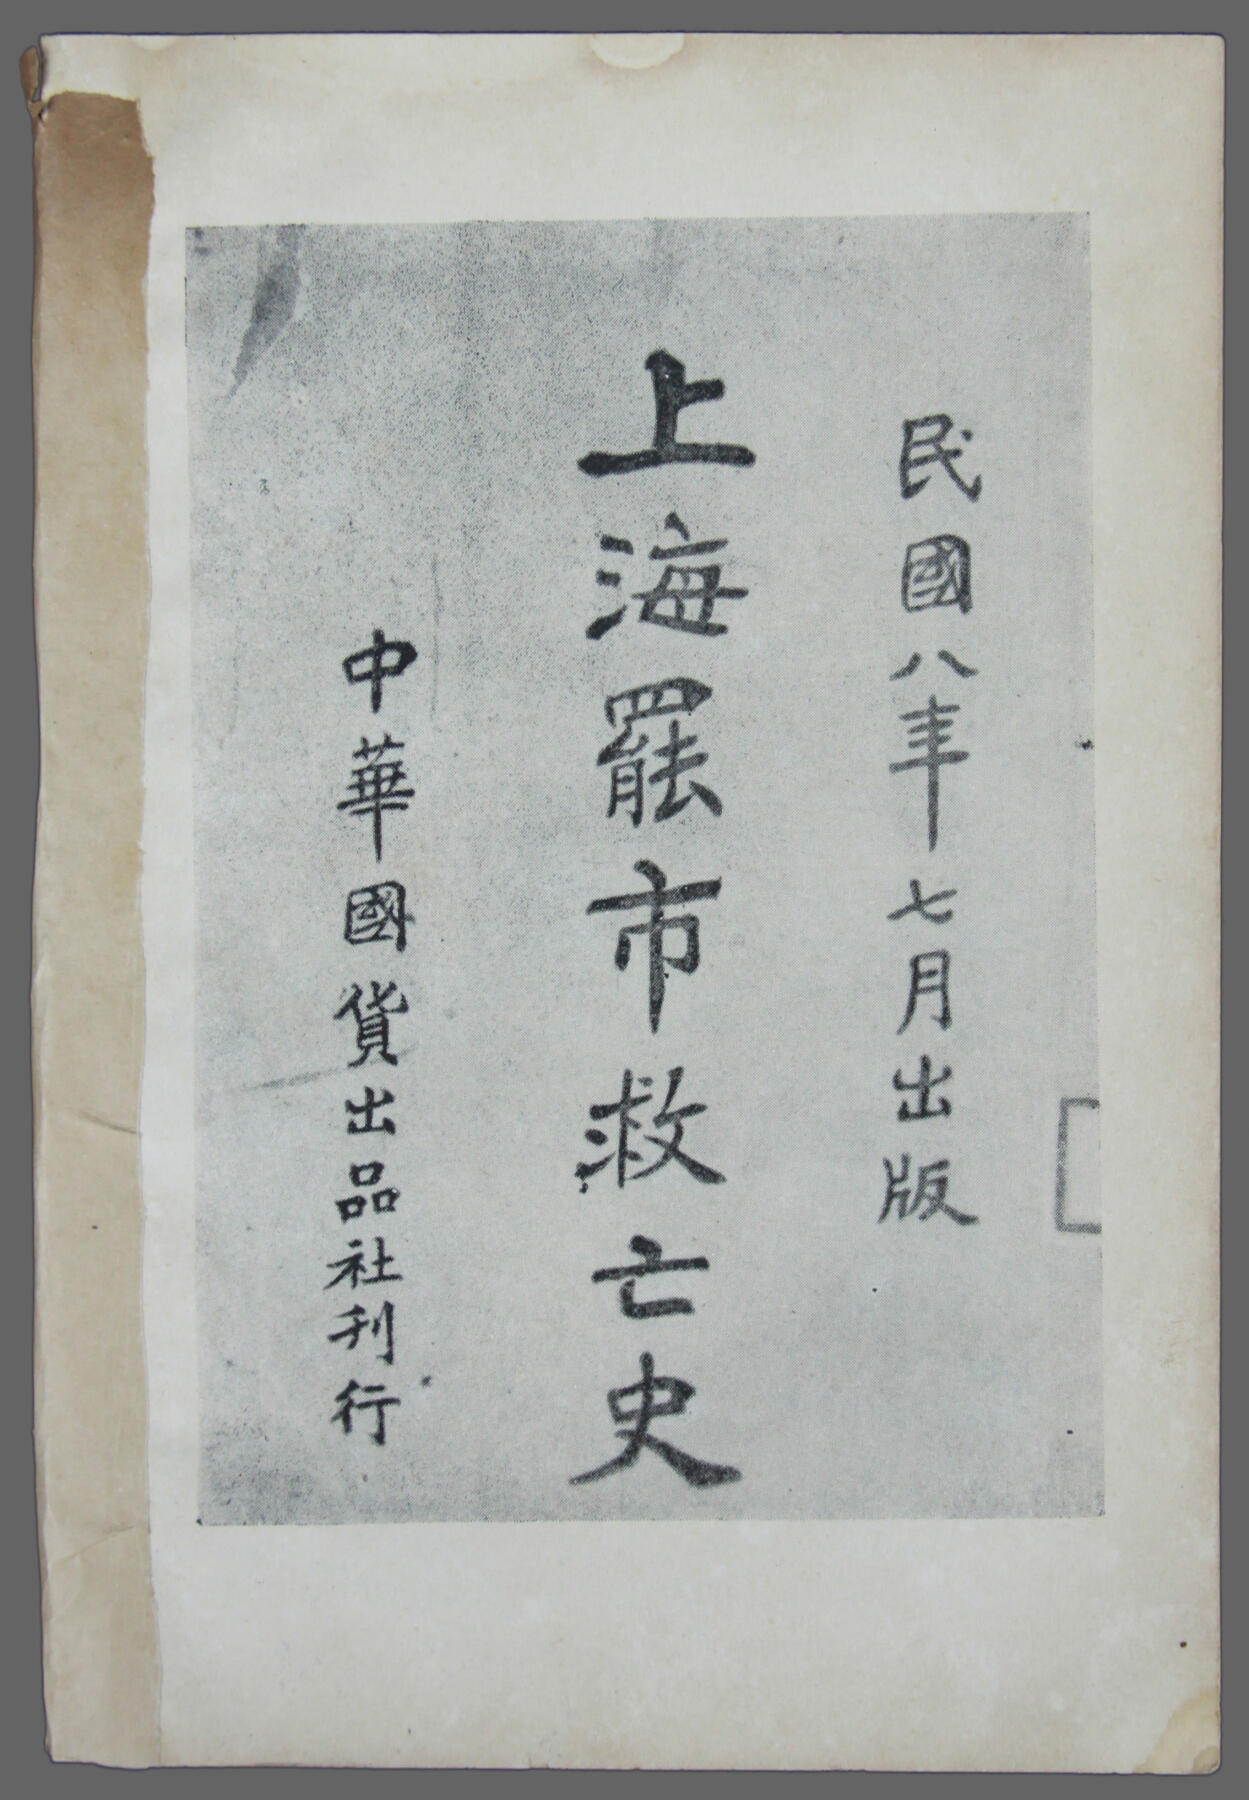 民國八年七月出版
上海罷市救亡史
中華國貨出品社刋行